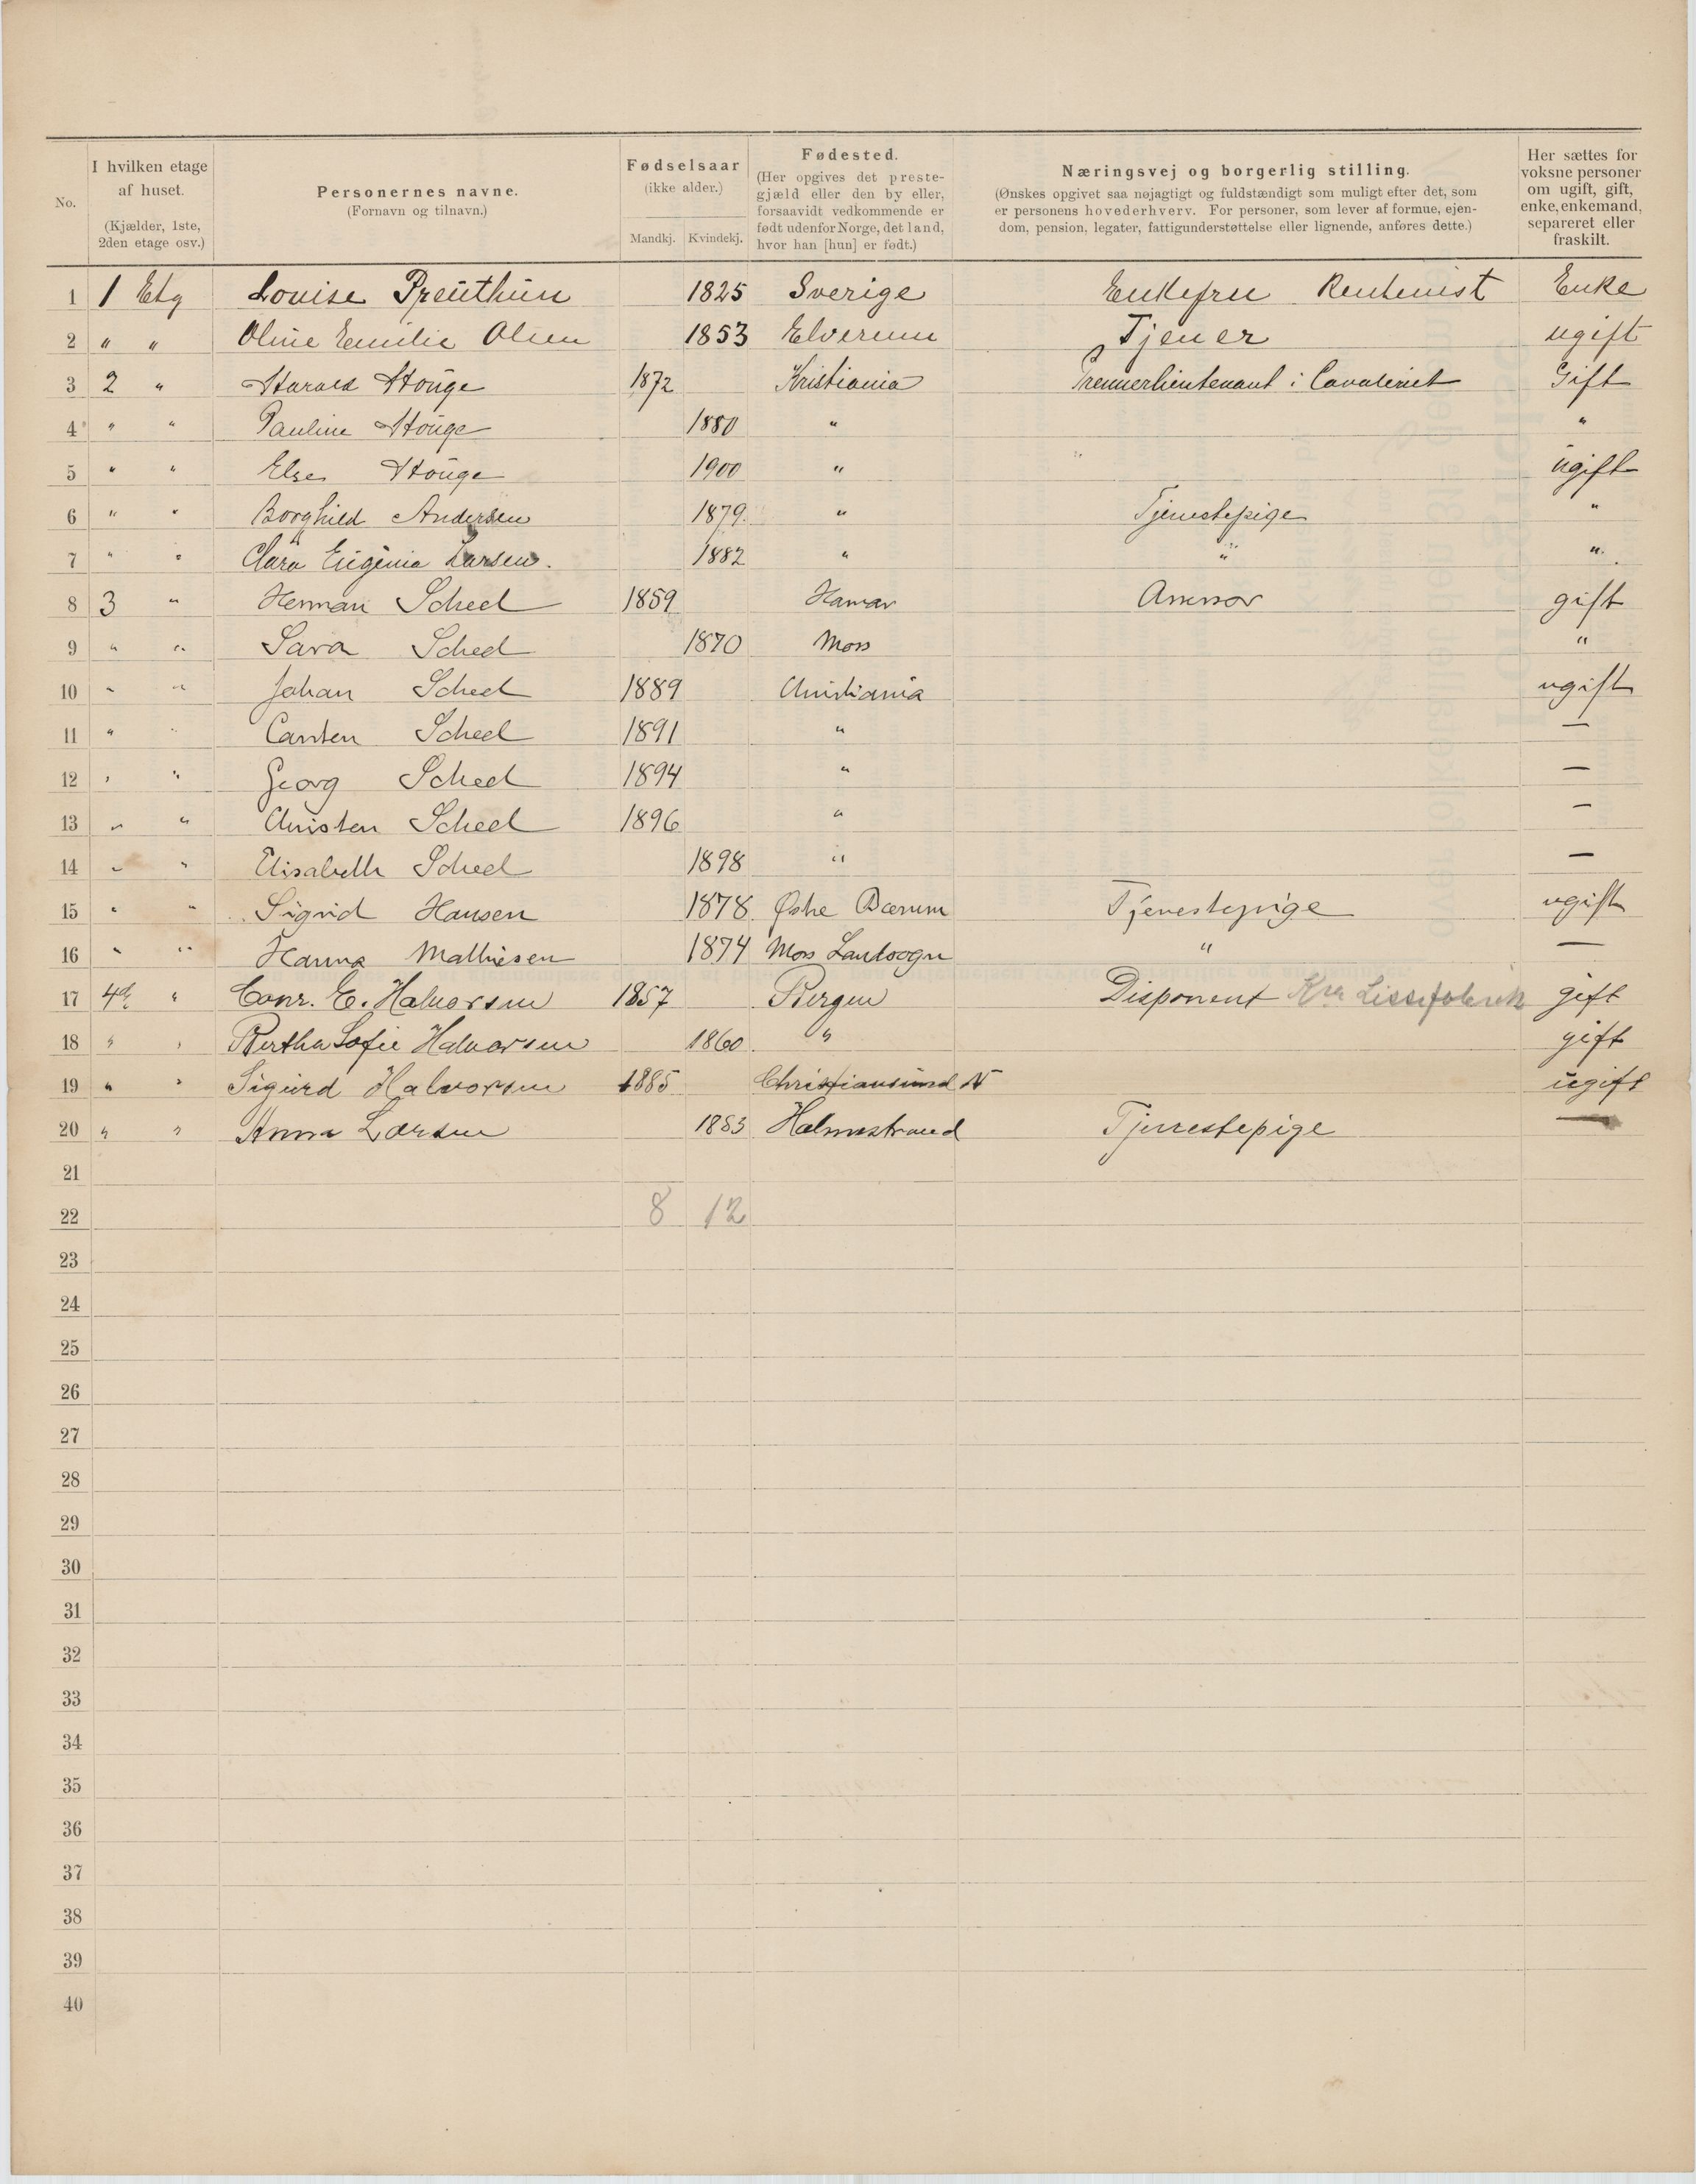 No.
I hvilken etage af huset. (Kjælder, 1ste, 2den etage osv.)
Personernes navne. (Fornavn og tilnavn.)
Fødselsaar (ikke alder.) Mandkj. Kvindekj.
Fødested. (Her opgives det prestegjæld eller den by eller, forsaavidt vedkommende er født udenfor Norge, det land, hvor han [hun] er født.)
Næringsvej og borgerlig stilling.
(Ønskes opgivet saa nøjagtigt og fuldstændigt som muligt efter det, som
er personens hovederhverv. For personer, som lever af formue, ejen-
dom, pension, legater, fattigunderstøttelse eller lignende, anføres dette.)
Her sættes for voksne personer om ugift, gift, enke, enkemand, separeret eller fraskilt.
1 1 Etg Louise Preuthun 1825 Sverige Enkefru Rentenist Enke
2 " " Oline Emilie Olsen 1853 Elverum Tjener ugift
3 2 " Harald Houge 1872 Kristiania Premierlieutenant i Cavaleriet Gift
4 " " Pauline Houge 1880 " "
5 " " Else Houge 1900 " ugift
6 " " Borghild Andersen 1879. " Tjenestepige "
7 " " Clara Eugenia Larsen. 1882 " " ".
8 3 " Herman Scheel 1859 Hamar Assessor gift
9 " " Sara Scheel 1870 Moss "
10 " " Johan Scheel 1889 Christiania ugift
11 " " Carsten Scheel 1891 " —
12 " " Georg Scheel 1894 " —
13 " " Christen Scheel 1896 " —
14 " " Elisabeth Scheel 1898 " —
15 " " Sigrid Hansen 1878 Østre Bærum Tjenestepige ugift
16 " " Hanna Mathiesen 1874 Moss Landsogn " —
17 4de " Conr. E. Halvorsen 1857 Bergen Disponent Kra Lissefabrik gift
18 " " Bertha Sofie Halvorsen 1860 " gift
19 " " Sigurd Halvorsen 1885 Christiansund N ugift
20 " " Anna Larsen 1883 Holmestrand Tjenestepige —
21
22 8 12
23
24
25
26
27
28
29
30
31
32
33
34
35
36
37
38
39
40